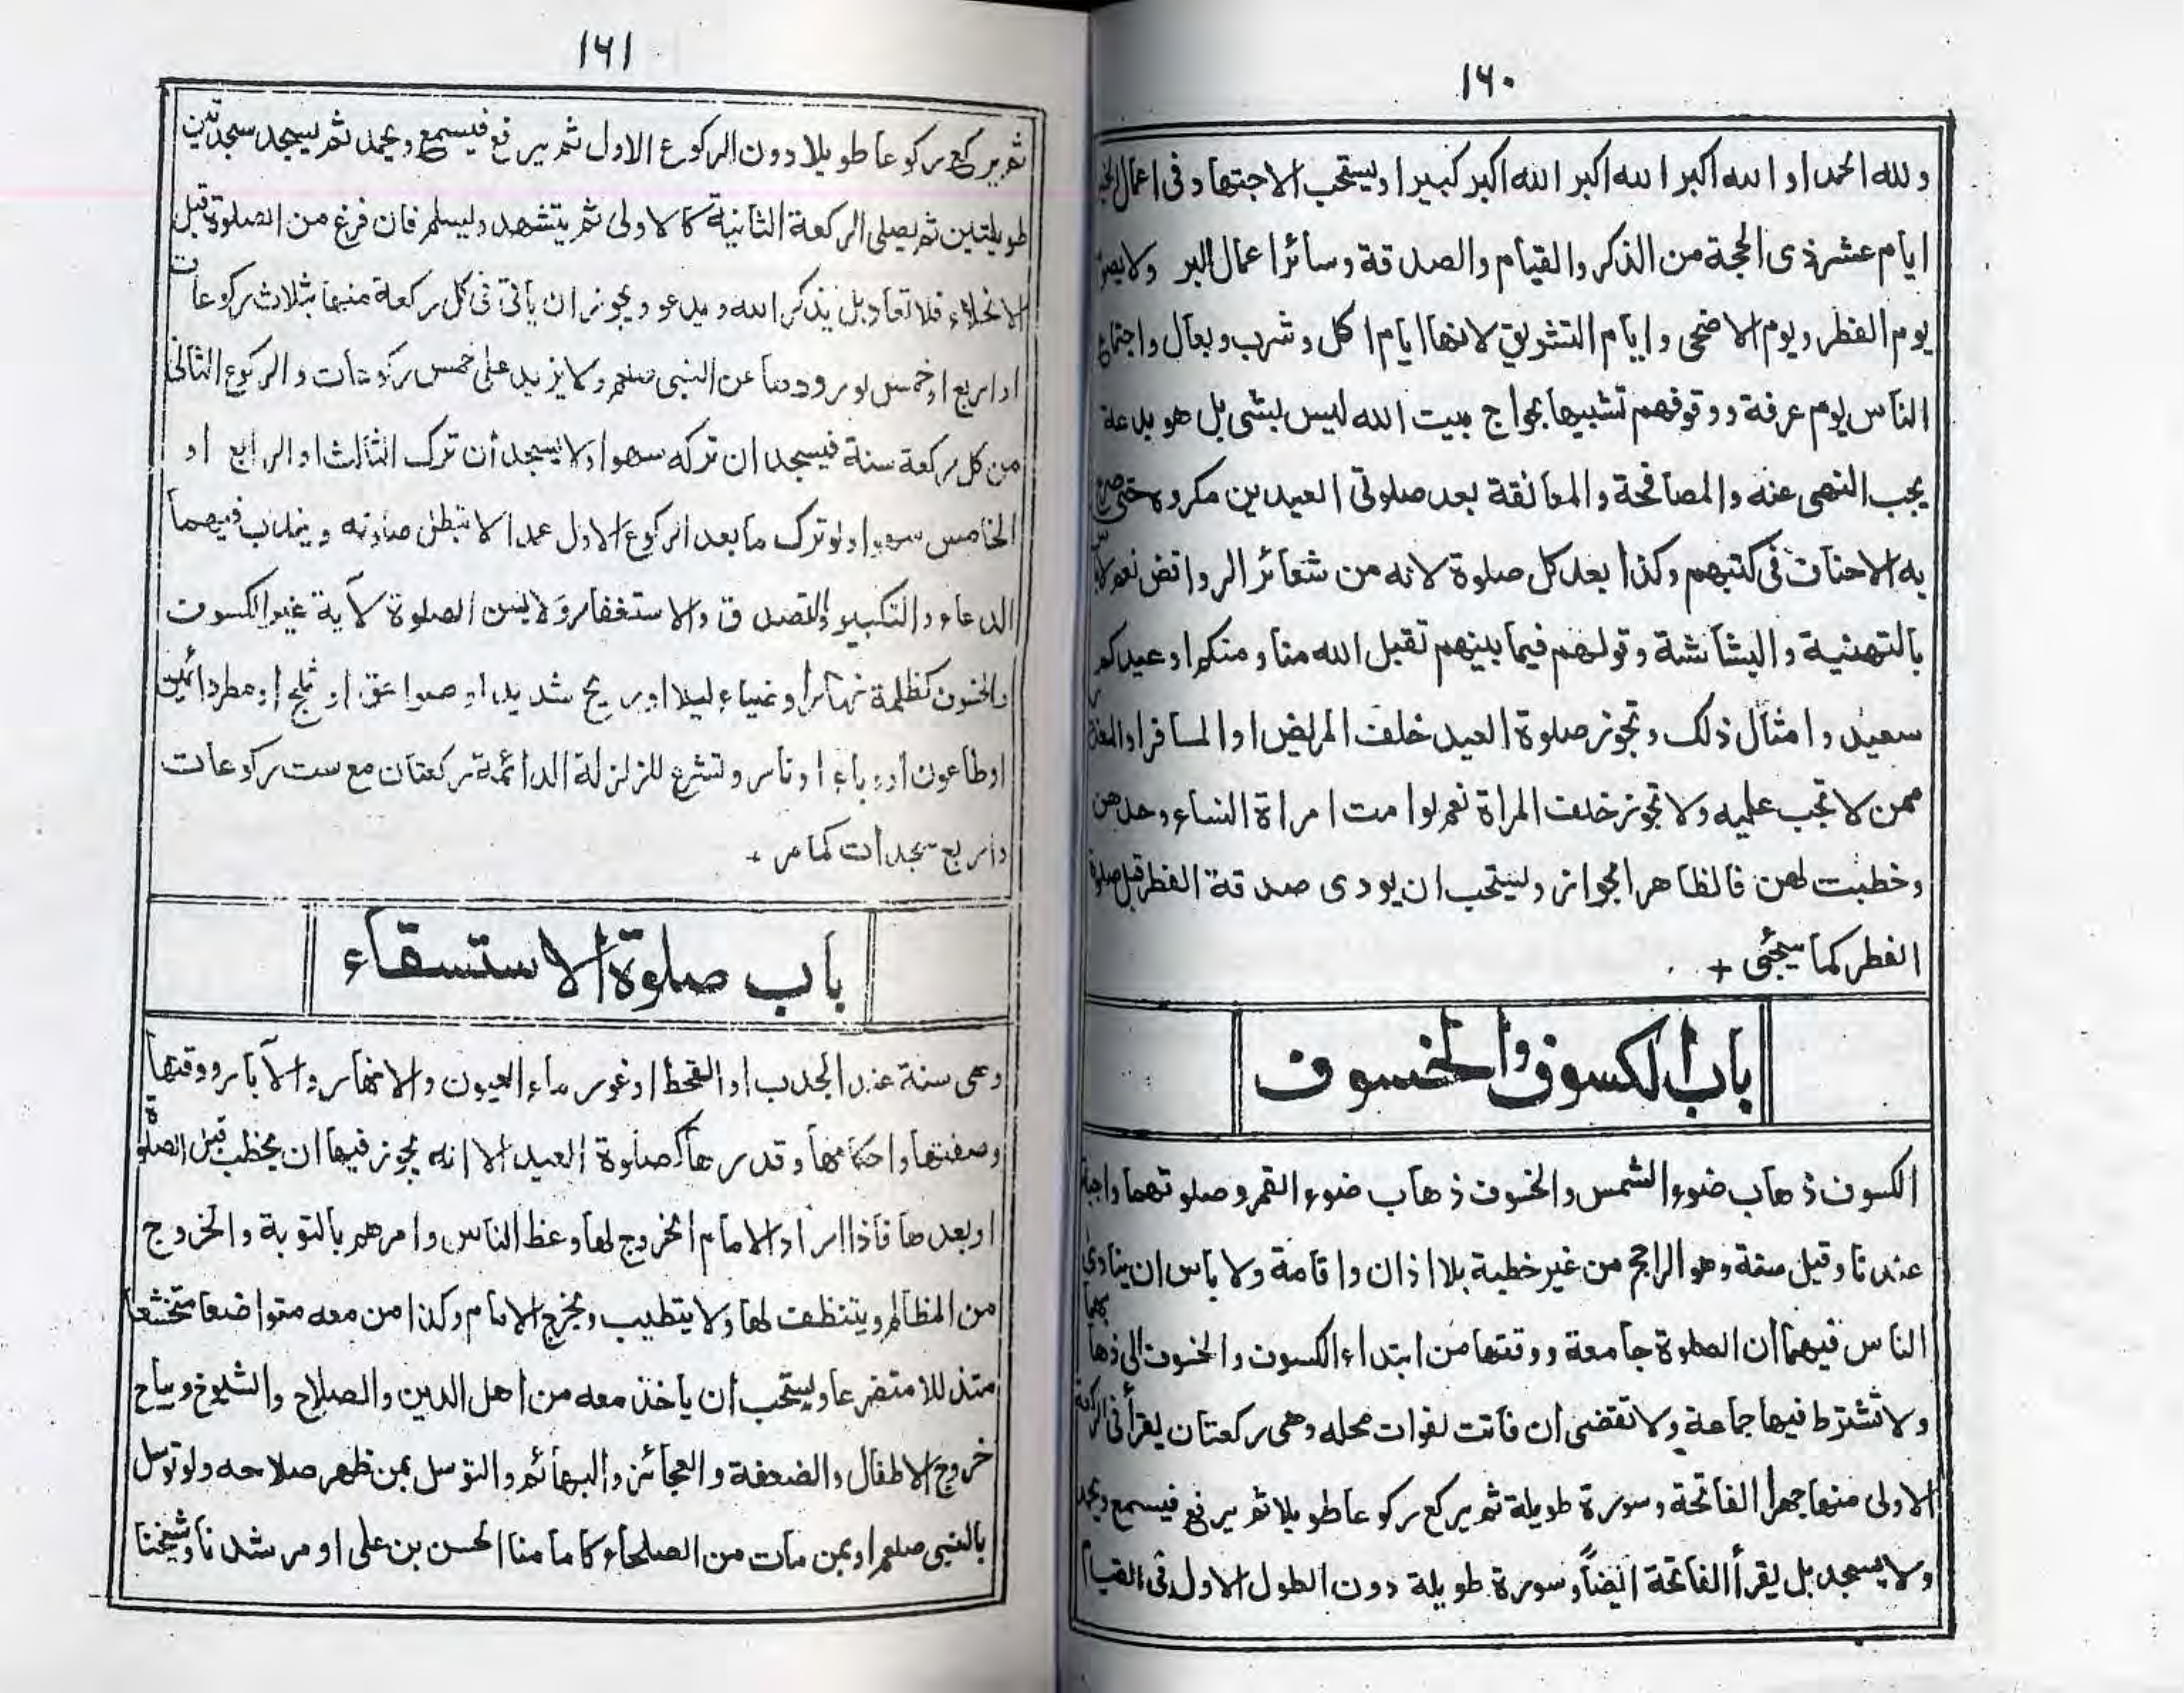 ۱۶۰
و لله الحمد او الله اكبر الله اكبر الله اكبر كبيرا ويستحب الاجتهاد فى اعمال
ايام عشر ذى الحجة من الذكر والقيام والصدقة وسائر اعمال البر ولا
يوم الفطر ويوم الاضحى و ايام التشريق لانها ايام اكل وشرب وبعال واجتماع
الناس يوم عرفة ووقوفهم تشبيها بحواج بيت الله ليس بشى بل هو بدعة
يجب النهى عنه والمصافحة والمعانقة بعد صلوتى العيدين مكروه
به الاحناف فى كتبهم وكذا بعد كل صلوة لانه من شعائر الروافض نعم لاباس
بالتهنية والبشاشة وقولهم فيما بينهم تقبل الله منا و منكم او عيدكم
سعيد و امثال ذلك وتجوز صلوة العيد خلف المريض او المسافر او
ممن لا تجب عليه ولا تجوز خلف المراة نعم لو امت امراة النساء وحدهن
وخطبت لهن فالظاهر الجواز ويستحب ان يودى صدقة الفطر قبل صلوة
الفطر كما سيجئى +
باب الكسوف والخسوف
الكسوف ذهاب ضوء الشمس والخسوف ذهاب ضوء القمر وصلوتهما واجبة
عندنا وقيل سنة وهو الراجح من غير خطبة بلا اذان و اقامة ولا باس ان ينادى
الناس فيهما ان الصلوة جامعة ووقتها من ابتداء الكسوف والخسوف الى ذهابهما
ولا تشترط فيها جماعة ولا تقضى ان فاتت لفوات محله وهى ركعتان يقرأ فى الركعة
الاولى منها جهرا الفاتحة وسورة طويلة ثم يركع ركوعا طويلا ثم يرفع فيسمع ويحمد
ولا يسجد بل يقرأ الفاتحة ايضاً وسورة طويلة دون الطول الاول فى القيام
۱۶۱
ثم يركع ركوعا طويلا دون الركوع الاول ثم يرفع فيسمع ويحمد ثم يسجد سجدتين
طويلتين ثم يصلى الركعة الثانية كالاولى ثم يتشهد ويسلم فان فرغ من الصلوة قبل
الانجلاء فلا تعاد بل يذكر الله و يدعو ويجوز ان ياتى فى كل ركعة منهما بثلاث ركوعات
او اربع او خمس لورودها عن النبى صلعم ولا يزيد على خمس ركوعات و الركوع الثانى
من كل ركعة سنة فيسجد ان تركه سهوا ولا يسجد ان ترك الثالث او الرابع او
الخامس سهوا ولو ترك ما بعد الركوع الاول عمدا لا تبطل صلوته ويندب فيهما
الدعاء والتكبير والتصدق والاستغفار ولا يسن الصلوة لآية غير الكسوف
والخسوف كظلمة نهارا وضياء ليلا او ريح شديد او صواعق او ثلج او مطر دائمين
او طاعون او وباء او نار و تشرع للزلزلة الدائمة ركعتان مع ست ركوعات
واربع سجدات كما مر +
باب صلوة الاستسقاء
وهى سنة عند الجدب او القحط او غور ماء العيون والانهار والآبار ووقتها
وصفتها واحكامها وقدرها كصلوة العيد الا انه يجوز فيها ان يخطب قبل الصلوة
او بعدها فاذا اراد الامام الخروج لها وعظ الناس وامرهم بالتوبة والخروج
من المظالم ويتنظف لها ولا يتطيب ويخرج الامام وكذا من معه متواضعا متخشعا
متذللا متضرعا ويستحب ان ياخذ معه من اهل الدين والصلاح والشيوخ ويباح
خروج الاطفال والضعفة والعجائز والبهائم والتوسل بمن ظهر صلاحه ولو توسل
بالنبى صلعم او بمن مات من الصلحاء كامامنا الحسن بن على او مرشدنا وشيخنا